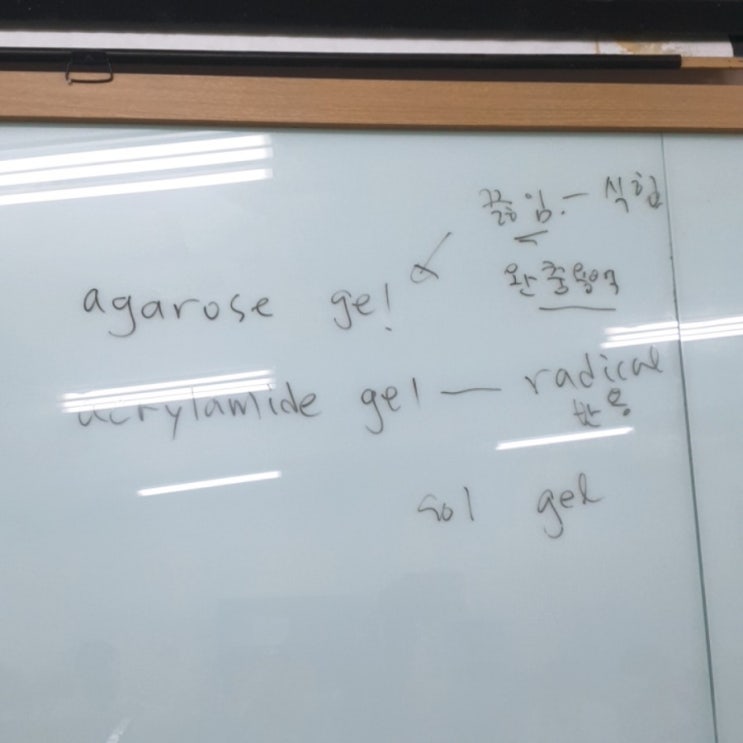 끓임. - 식힘
완충용액
agarose gel
acrylamide gel — radical
반응
sol gel